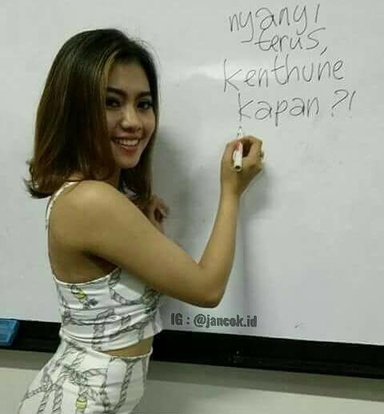 nyanyi
terus,
kenthune
kapan ?!
IG : @jancok.id